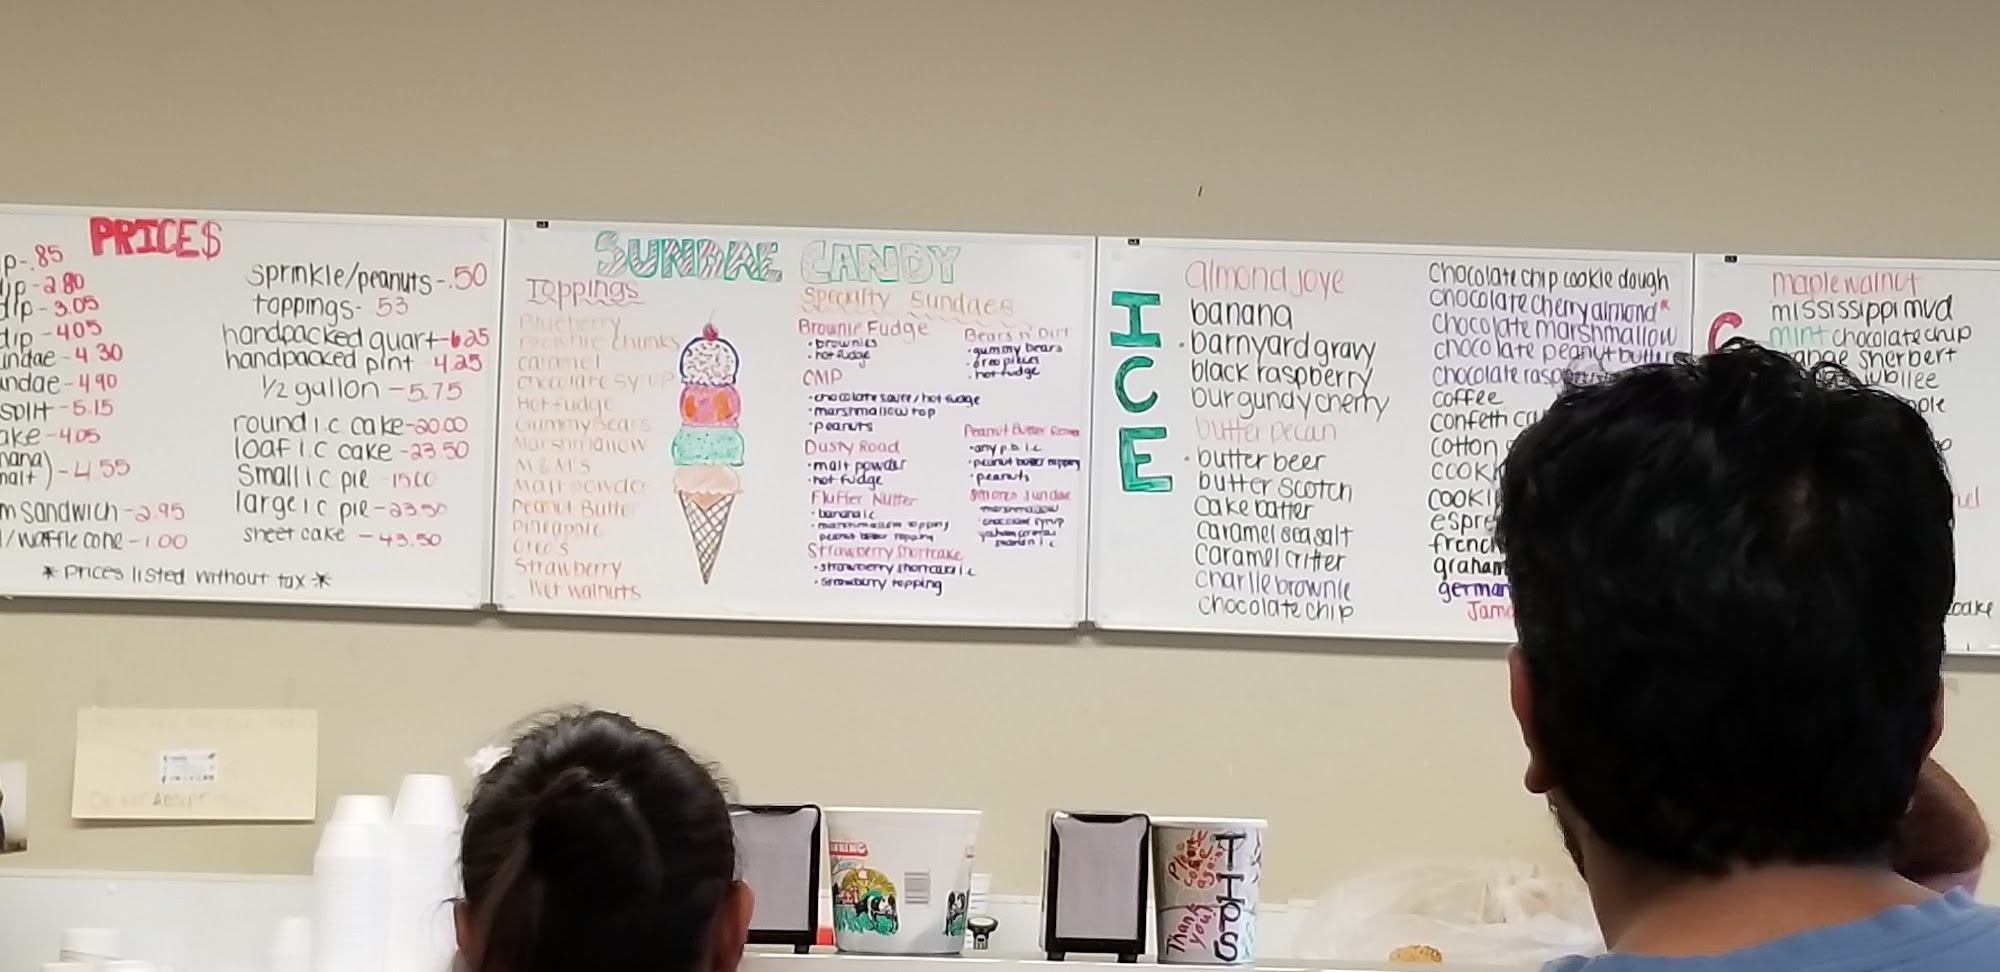 PRICE$
p-.85
ip-2.80
dip-3.05
dip-405
undae-4.30
undae-4.90
split-5.15
ake-4.05
nana)
malt)-4.55
m sandwich-2.95
/waffle cone-1.00
sprinkle/peanuts-.50
toppings-53
handpacked quart-625
handpacked pint-4.25
1/2 gallon-5.75
round i.c cake-20.00
loaf i.c cake-23.50
Small i c pie-1500
large i c pie-23.50
sheet cake-43.50
*Prices listed without tax*
SUNDAE CANDY
Toppings
Blueberry
Brownie chunks
caramel
chocolate syrup
Hot fudge
Gummy Bears
Marshmallow
M&M's
Malt powder
Peanut Butter
Pineapple
Oreo's
Strawberry
Wet walnuts
Specialty Sundaes
Brownie Fudge
•brownies
•hot fudge
CMP
•chocolate sauce/hot fudge
•marshmallow top
•peanuts
Dusty Road
•malt powder
•hot fudge
Fluffer Nutter
•banana i.c
•marshmallow topping
peanut butter topping
Strawberry Shortcake
•strawberry shortcake i.c
•strawberry topping
Bears n' Dirt
•gummy bears
•oreo pieces
•hot fudge
Peanut Butter
•any p.b. i.c
•peanut butter topping
•peanuts
Smores Sundae
marshmallow
chocolate syrup
ICE
almond joye
banana
•barnyard gravy
black raspberry
burgundy cherry
butter pecan
•butter beer
butter scotch
cake batter
caramel sea salt
caramel critter
charlie brownie
chocolate chip
chocolate chip cookie dough
chocolate cherry almond*
chocolate marshmallow
chocolate peanut butter
chocolate rasp
coffee
confetti ca
cotton
cook
cooki
espre
french
graham
german
Jama
C
maple walnut
mississippi mud
mint chocolate chip
ange sherbert
jubilee
ple
cake
Do Not Accept
Please come again
Thank you!
TIPS